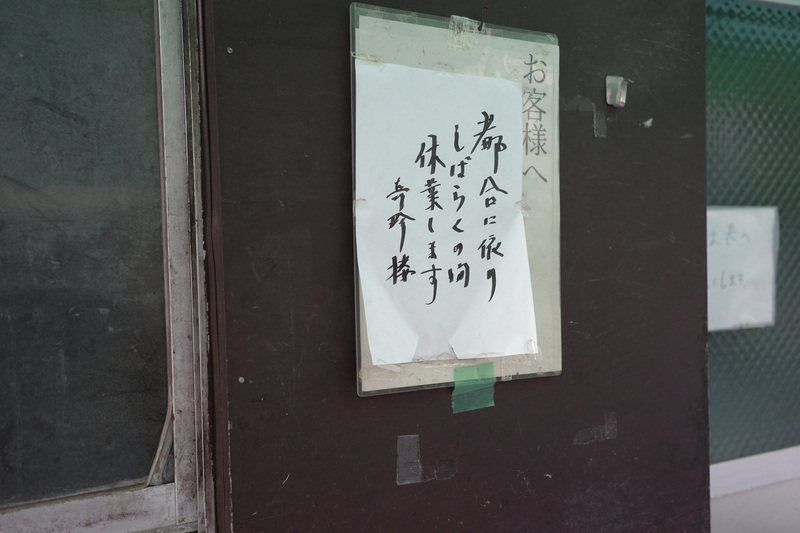 お客様へ
都合に依り
しばらくの間
休業します
奇珍楼